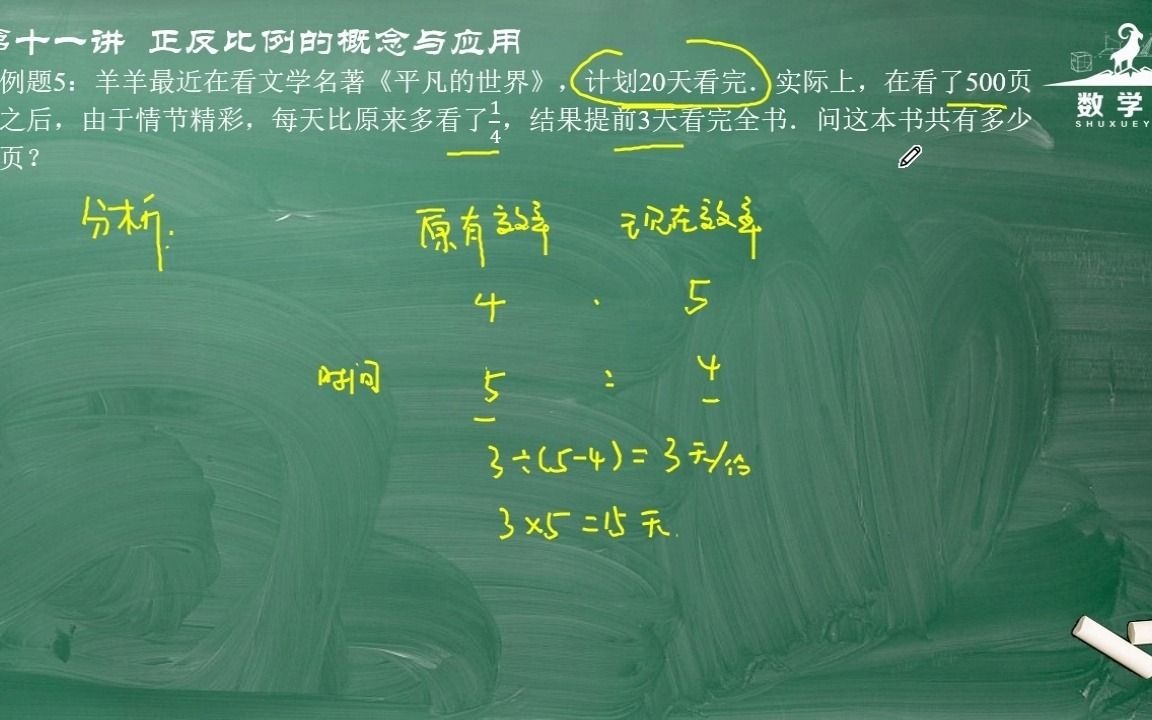 第十一讲 正反比例的概念与应用
例题5：羊羊最近在看文学名著《平凡的世界》，计划20天看完．实际上，在看了500页
之后，由于情节精彩，每天比原来多看了1/4，结果提前3天看完全书．问这本书共有多少
页？
数学
SHUXUEY
分析.
原有效率 现在效率
4 : 5
时间 5 : 4
3÷(5-4)=3天/份
3×5=15天.